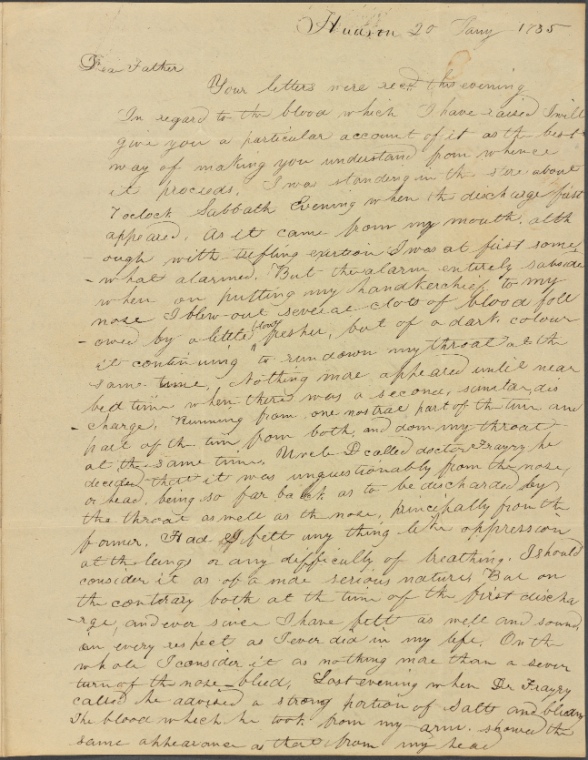 Hudson 20 Jany 1835
Dear Father
Your letters were recd this evening
In regard to the blood which I have raised I will
give you a particular account of it as the best
way of making you understand from whence
it proceeds. I was standing in the store about
7 oclock Sabbath Evening when the discharge first
appeared. As it came from my mouth. alth
-ough with trifling exertion I was at first some
-what alarmed. But the alarm entirely subsided
when on putting my handkerchief to my
nose I blew out several clots of blood foll
-owed by a little blood fresher, but of a dark colour
it continuing to run down my throat at the
same time. Nothing more appeared until near
bed time when there was a second, similar, dis
-charge, running from one nostral part of the time and
part of the time from both, and down my throat
at the same time. Uncle D called doctor Frayry he
decided that it was unquestionably from the nose,
or head, being so far back as to be discharded by
the throat as well as the nose, principally from the
former. Had I felt any thing like oppression
at the lungs or any difficulty of breathing. I should
consider it as of a more serious nature. But on
the contorary both at the time of the first discha
-rge, and ever since I have felt as well and sound
in every respect as I ever did in my life. On the
whole I consider it as nothing more than a sever
turn of the nose-bleed. Last evening when Dr Frayry
called he advised a strong portion of salts and bleeding
The blood which he took from my arm. showed the
same appearance as that from my head